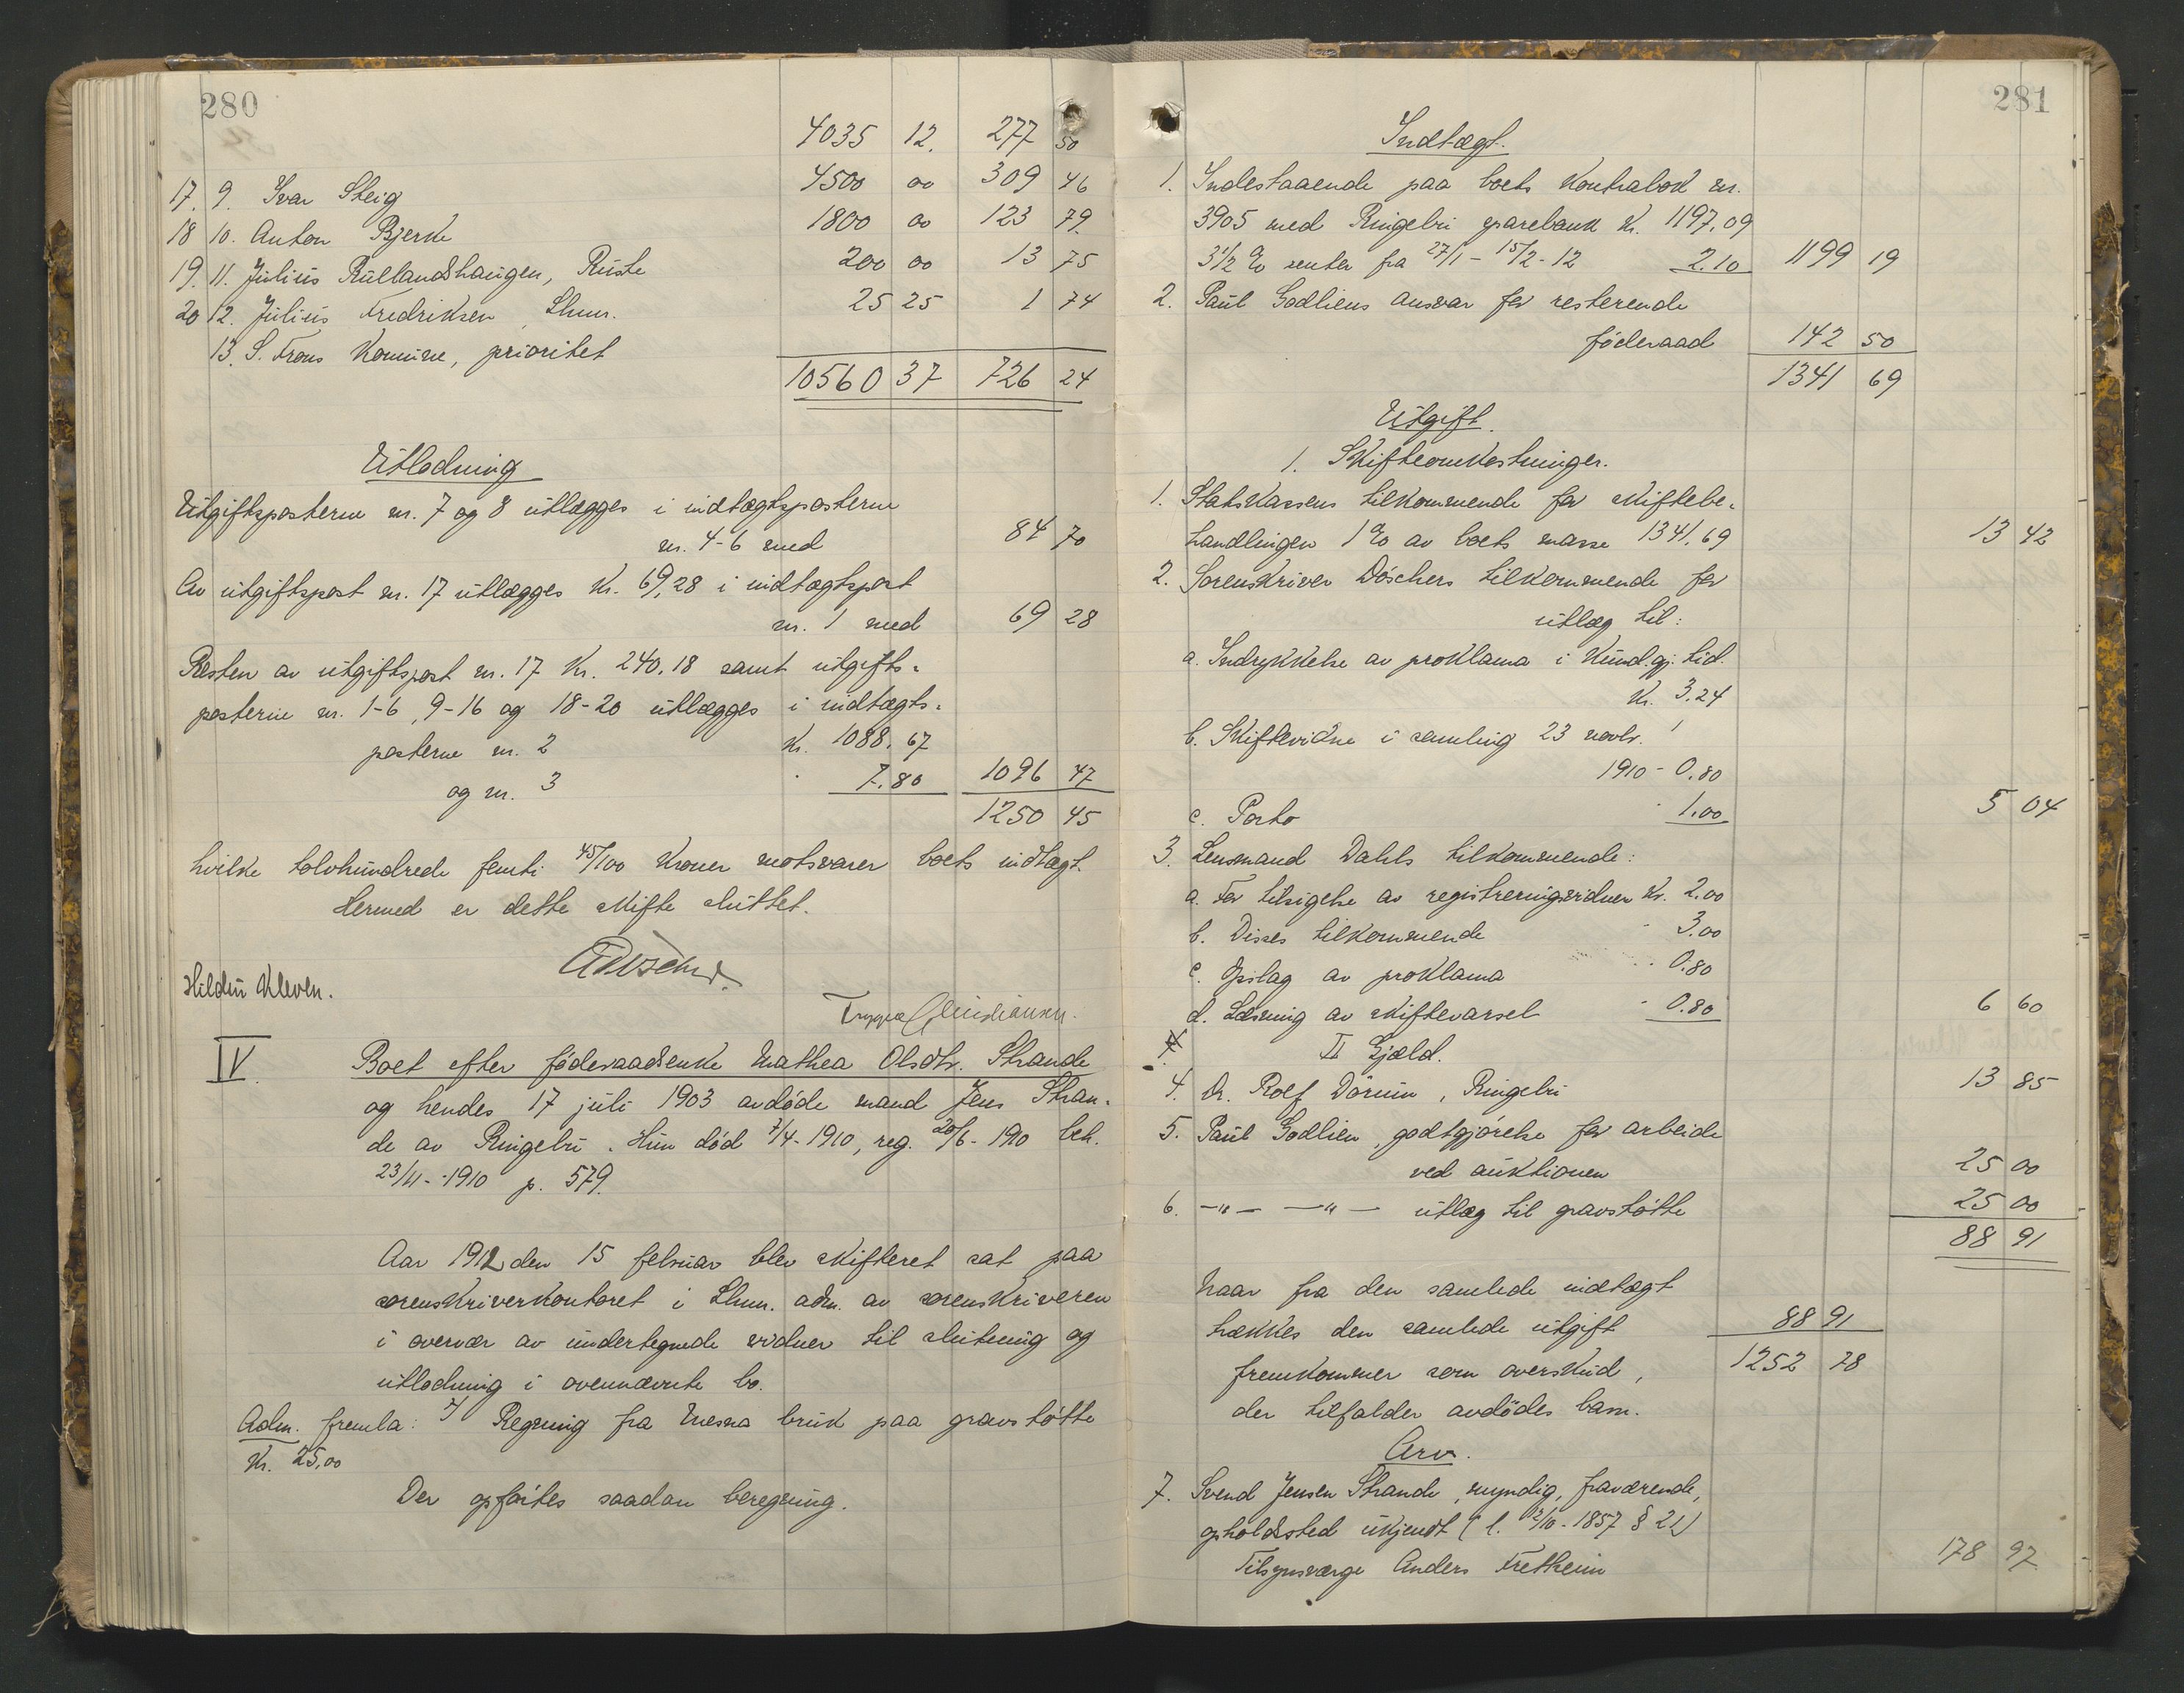 280
4035 12. 277 50
17. 9. Ivar Steig 4500 00 309 46
18 10. Anton Bjerke 1800 00 123 79
19. 11. Julius Rullandshaugen, Ruste 200 00 13 75
20 12. Julius Fredriksen, Lhmr. 25 25 1 74
13. S. Frons Kommune, prioritet
10560 37 726 24
Utlodning
Utgiftsposterne nr. 7 og 8 utlægges i indtægtsposterne
nr. 4-6 med 84 70
Av utgiftspost nr. 17 utlægges kr. 69,28 i indtægtspost
nr. 1 med 69 28
Resten av utgiftspost nr. 17 kr. 240,18 samt utgifts-
posterne nr. 1-6, 9-16 og 18-20 utlægges i indtægts-
posterne nr. 2 kr. 1088,67
og nr. 3 7.80 1096 47
1250 45
hvilke tolvhundrede femti 45/100 kroner motsvarer boets indtægt.
Hermed er dette skifte sluttet.
Hildur Kleven.
Trygve Christiansen.
IV. Boet efter föderaadsenke Mathea Olsdtr. Strande
og hendes 17 juli 1903 avdöde mand Jens Stran-
de av Ringebu. Hun död 7/4-1910, reg. 20/6-1910 beh.
23/11-1910 p. 579.
Aar 1912 den 15 februar blev skifteret sat paa
sorenskriverkontoret i Lhmr. adm. av sorenskriveren
i overvær av undertegnede vidner til slutning og
utlodning i ovennævnte bo.
Adm. fremla: 1) Regning fra Mesna bruk paa gravstötte
kr. 25,00
Der opförtes saadan beregning.
281
Indtægt.
1. Indestaaende paa boets kontrabok nr.
3905 med Ringebu sparebank kr. 1197,09
3 1/2 % renter fra 27/1 - 15/2-12 2.10 1199 19
2. Paul Godliens ansvar for resterende
föderaad 142 50
1341 69
Utgift.
1. Skifteomkostninger.
1. Statskassens tilkommende for skiftebe-
handlingen 1 % av boets masse 1341.69 13 42
2. Sorenskriver Döschers tilkommende for
utlæg til:
a. Indrykkelse av proklama i Kund.gj. tid.
kr. 3.24
b. Skiftevidne i samling 23 novbr.
1910 - 0.80
c. Porto 1.00 5 04
3. Lensmand Dahls tilkommende:
a. For tilsigelse av registreringsvidner kr. 2.00
b. Disses tilkommende - 3.00
c. Opslag av proklama - 0.80
d. Læsning av skiftevarsel - 0.80 6 60
II Gjæld.
4. Dr. Rolf Dörum, Ringebu 13 85
5. Paul Godlien, godtgjörelse for arbeide
ved auktionen 25 00
6. -"- -"- utlæg til gravstötte 25 00
88 91
Naar fra den samlede indtægt
trækkes den samlede utgift 88 91
fremkommer som overskud, 1252 78
der tilfalder avdödes barn.
Arv.
7. Svend Jensen Strande, myndig, fraværende,
opholdssted ukjendt (l. 12/10-1857 § 21)
Tilsynsværge Anders Fretheim 178 97